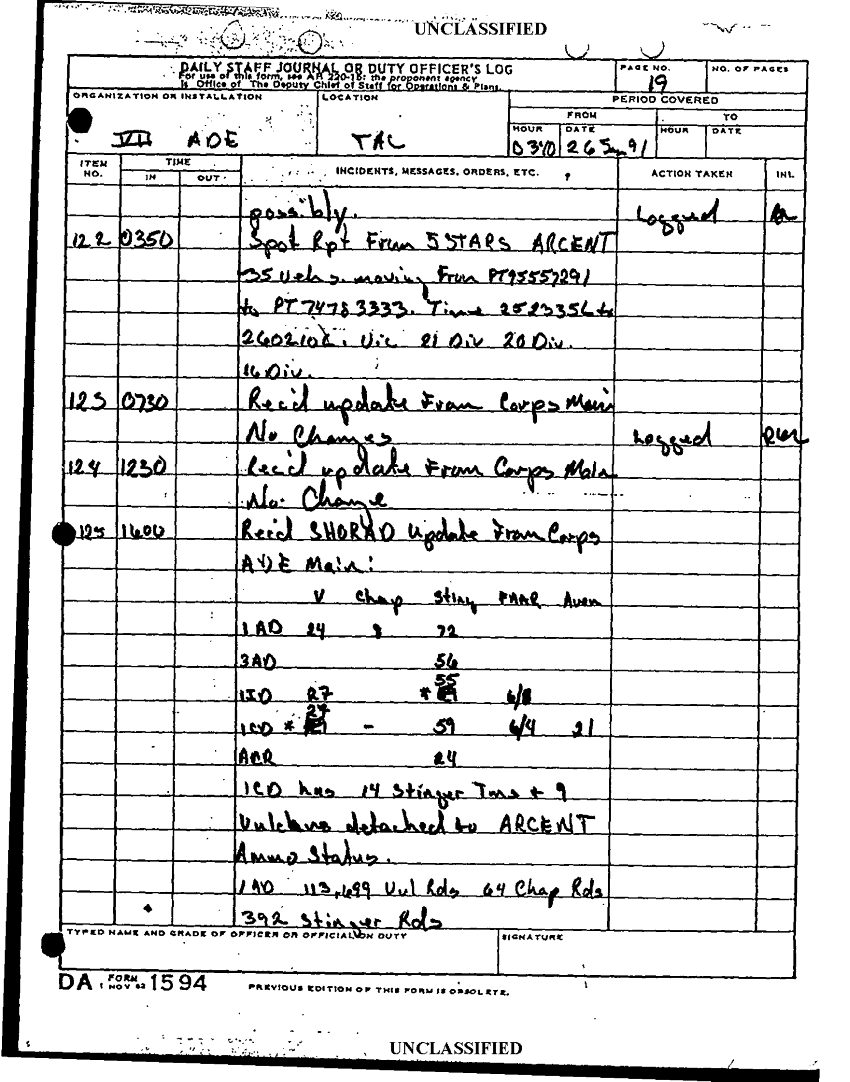 UNCLASSIFIED
DAILY STAFF JOURNAL OR DUTY OFFICER'S LOG
For use of this form, see AR 220-15: the proponent agency
is Office of The Deputy Chief of Staff for Operations & Plans.
PAGE NO.
19
NO. OF PAGES
ORGANIZATION OR INSTALLATION
VII ADE
LOCATION
TAC
PERIOD COVERED
FROM
TO
HOUR
DATE
HOUR
DATE
26 91
ITEM NO.
TIME
IN
OUT
INCIDENTS, MESSAGES, ORDERS, ETC.
ACTION TAKEN
INL
possibly. Logged
122 0350 Spot Rpt From JSTARS ARCENT
35 Vehs. moving From PT95557291
to PT 74783333. Time 252335L to
260210L. Vic 21 Div 20 Div.
16 Div.
123 0730 Rec'd update From Corps Main
No Changes Logged
124 1230 Rec'd update From Corps Main
No Change
125 1600 Rec'd SHORAD Update From Corps
ADE Main:
V Chap Sting FAAR Aven
1AD 24 8 72
3AD 56
55
1ID 27 * 6/8
24
1CD * - 59 6/4 21
ACR 24
1CD has 14 Stinger Tms + 9
Vulcans detached to ARCENT
Ammo Status.
1AD 113,699 Vul Rds 64 Chap Rds
392 Stinger Rds
TYPED NAME AND GRADE OF OFFICER OR OFFICIAL ON DUTY
SIGNATURE
DA FORM 1 NOV 62 1594
PREVIOUS EDITION OF THIS FORM IS OBSOLETE.
UNCLASSIFIED